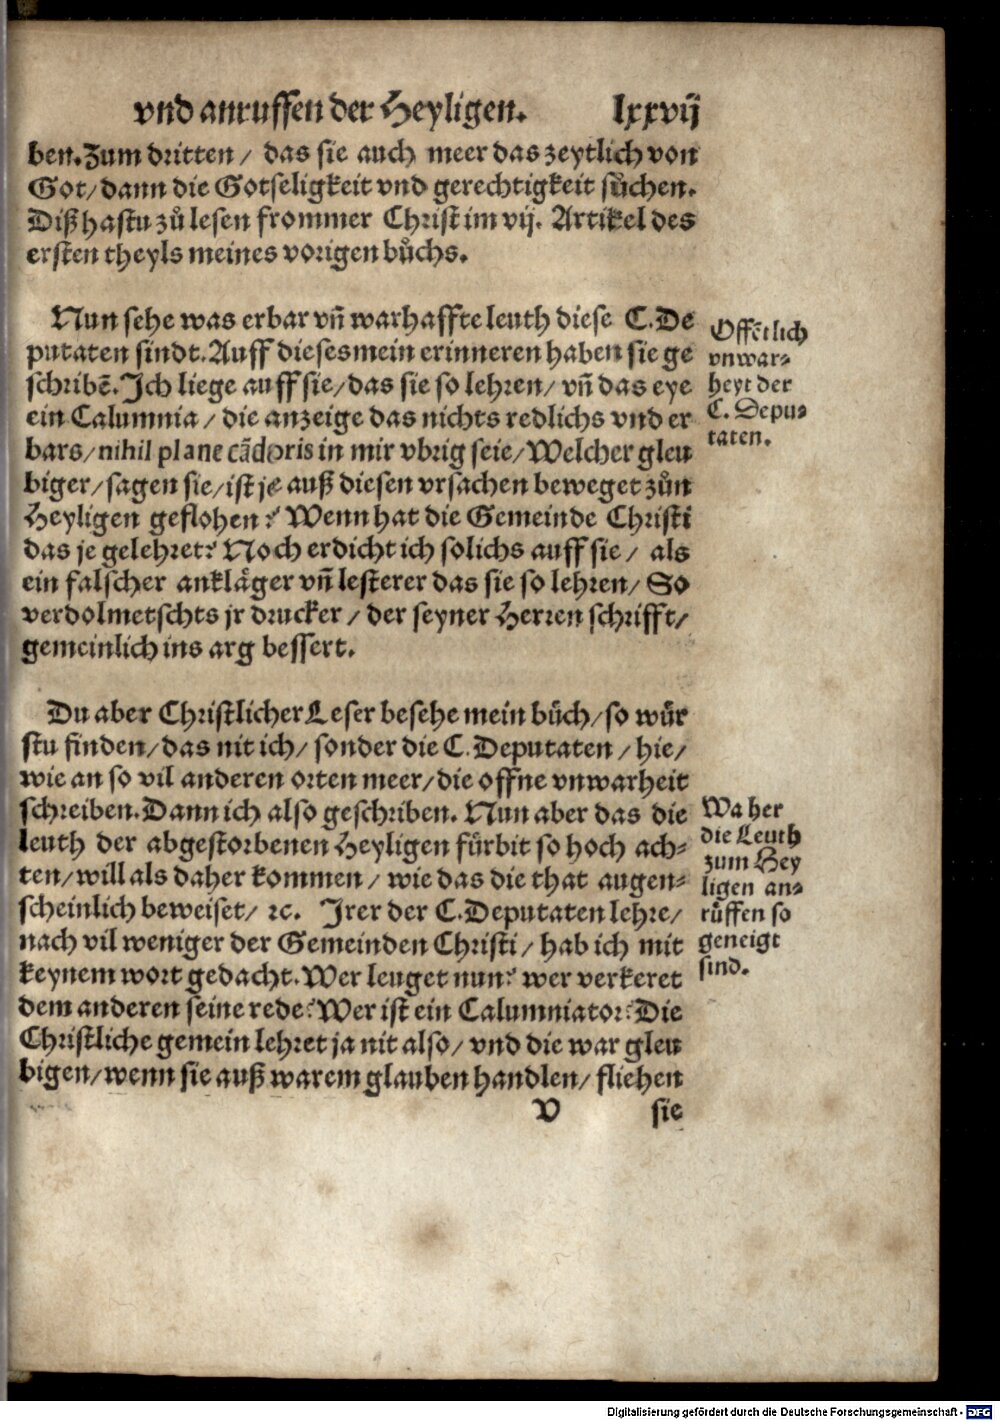 vnd anruffen der Heyligen. lxxvij
ben. Zum dritten / das sie auch meer das zeytlich von
Got / dann die Gotseligkeit vnd gerechtigkeit sůchen.
Diß hastu zů lesen frommer Christ im vij. Artikel des
ersten theyls meines vorigen bůchs.
Nun sehe was erbar vñ warhaffte leuth diese C. De
putaten sindt. Auff dieses mein erinneren haben sie ge
schribẽ. Ich liege auff sie / das sie so lehren / vñ das eye
ein Calumnia / die anzeige das nichts redlichs vnd er
bars / nihil plane cãdoris in mir vbrig seie / Welcher gleu
biger / sagen sie / ist je auß diesen vrsachen beweget zůn
Heyligen geflohen? Wenn hat die Gemeinde Christi
das je gelehret? Noch erdicht ich solichs auff sie / als
ein falscher ankläger vñ lesterer das sie so lehren / So
verdolmetschts jr drucker / der seyner Herren schrifft /
gemeinlich ins arg bessert.
Offẽtlich
vnwar-
heyt der
C. Depu-
taten.
Du aber Christlicher Leser besehe mein bůch / so wür
stu finden / das nit ich / sonder die C. Deputaten / hie /
wie an so vil anderen orten meer / die offne vnwarheit
schreiben. Dann ich also geschriben. Nun aber das die
leuth der abgestorbenen Heyligen fürbit so hoch ach-
ten / will als daher kommen / wie das die that augen-
scheinlich beweiset / ꝛc. Irer der C. Deputaten lehre /
nach vil weniger der Gemeinden Christi / hab ich mit
keynem wort gedacht. Wer leuget nun? wer verkeret
dem anderen seine rede? Wer ist ein Calumniator? Die
Christliche gemein lehret ja nit also / vnd die war gleu
bigen / wenn sie auß warem glauben handlen / fliehen
Wa her
die Leuth
zum Hey
ligen an-
růffen so
geneigt
sind.
V sie
Digitalisierung gefördert durch die Deutsche Forschungsgemeinschaft - DFG